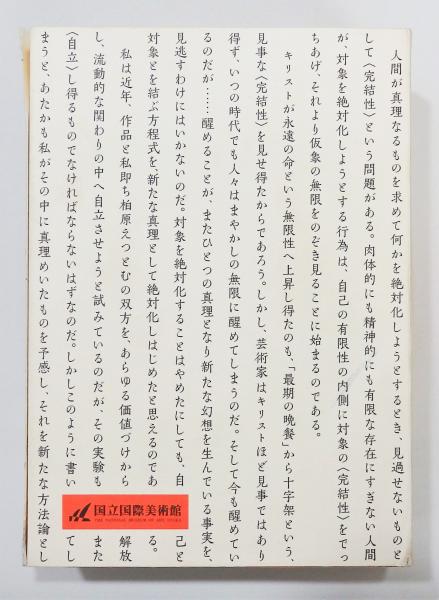 人間が真理なるものを求めて何かを絶対化しようとするとき、見過せないものと
して〈完結性〉という問題がある。肉体的にも精神的にも有限な存在にすぎない人間
が、対象を絶対化しようとする行為は、自己の有限性の内側に対象の〈完結性〉をでっ
ちあげ、それより仮象の無限をのぞき見ることに始まるのである。
キリストが永遠の命という無限性へ上昇し得たのも、「最期の晩餐」から十字架という、
見事な〈完結性〉を見せ得たからであろう。しかし、芸術家はキリストほど見事ではあり
得ず、いつの時代でも人々はまやかしの無限に醒めてしまうのだ。そして今も醒めてい
るのだが……醒めることが、またひとつの真理となり新たな幻想を生んでいる事実を、
見逃すわけにはいかないのだ。対象を絶対化することはやめたにしても、自己と
対象とを結ぶ方程式を、新たな真理として絶対化しはじめたと思えるのである。
私は近年、作品と私即ち柏原えつとむの双方を、あらゆる価値づけから解放
し、流動的な関わりの中へ自立させようと試みているのだが、その実験もまた
〈自立〉し得るものでなければならないはずなのだ。しかしこのように書いてし
まうと、あたかも私がその中に真理めいたものを予感し、それを新たな方法論とし
国立国際美術館
THE NATIONAL MUSEUM OF ART, OSAKA